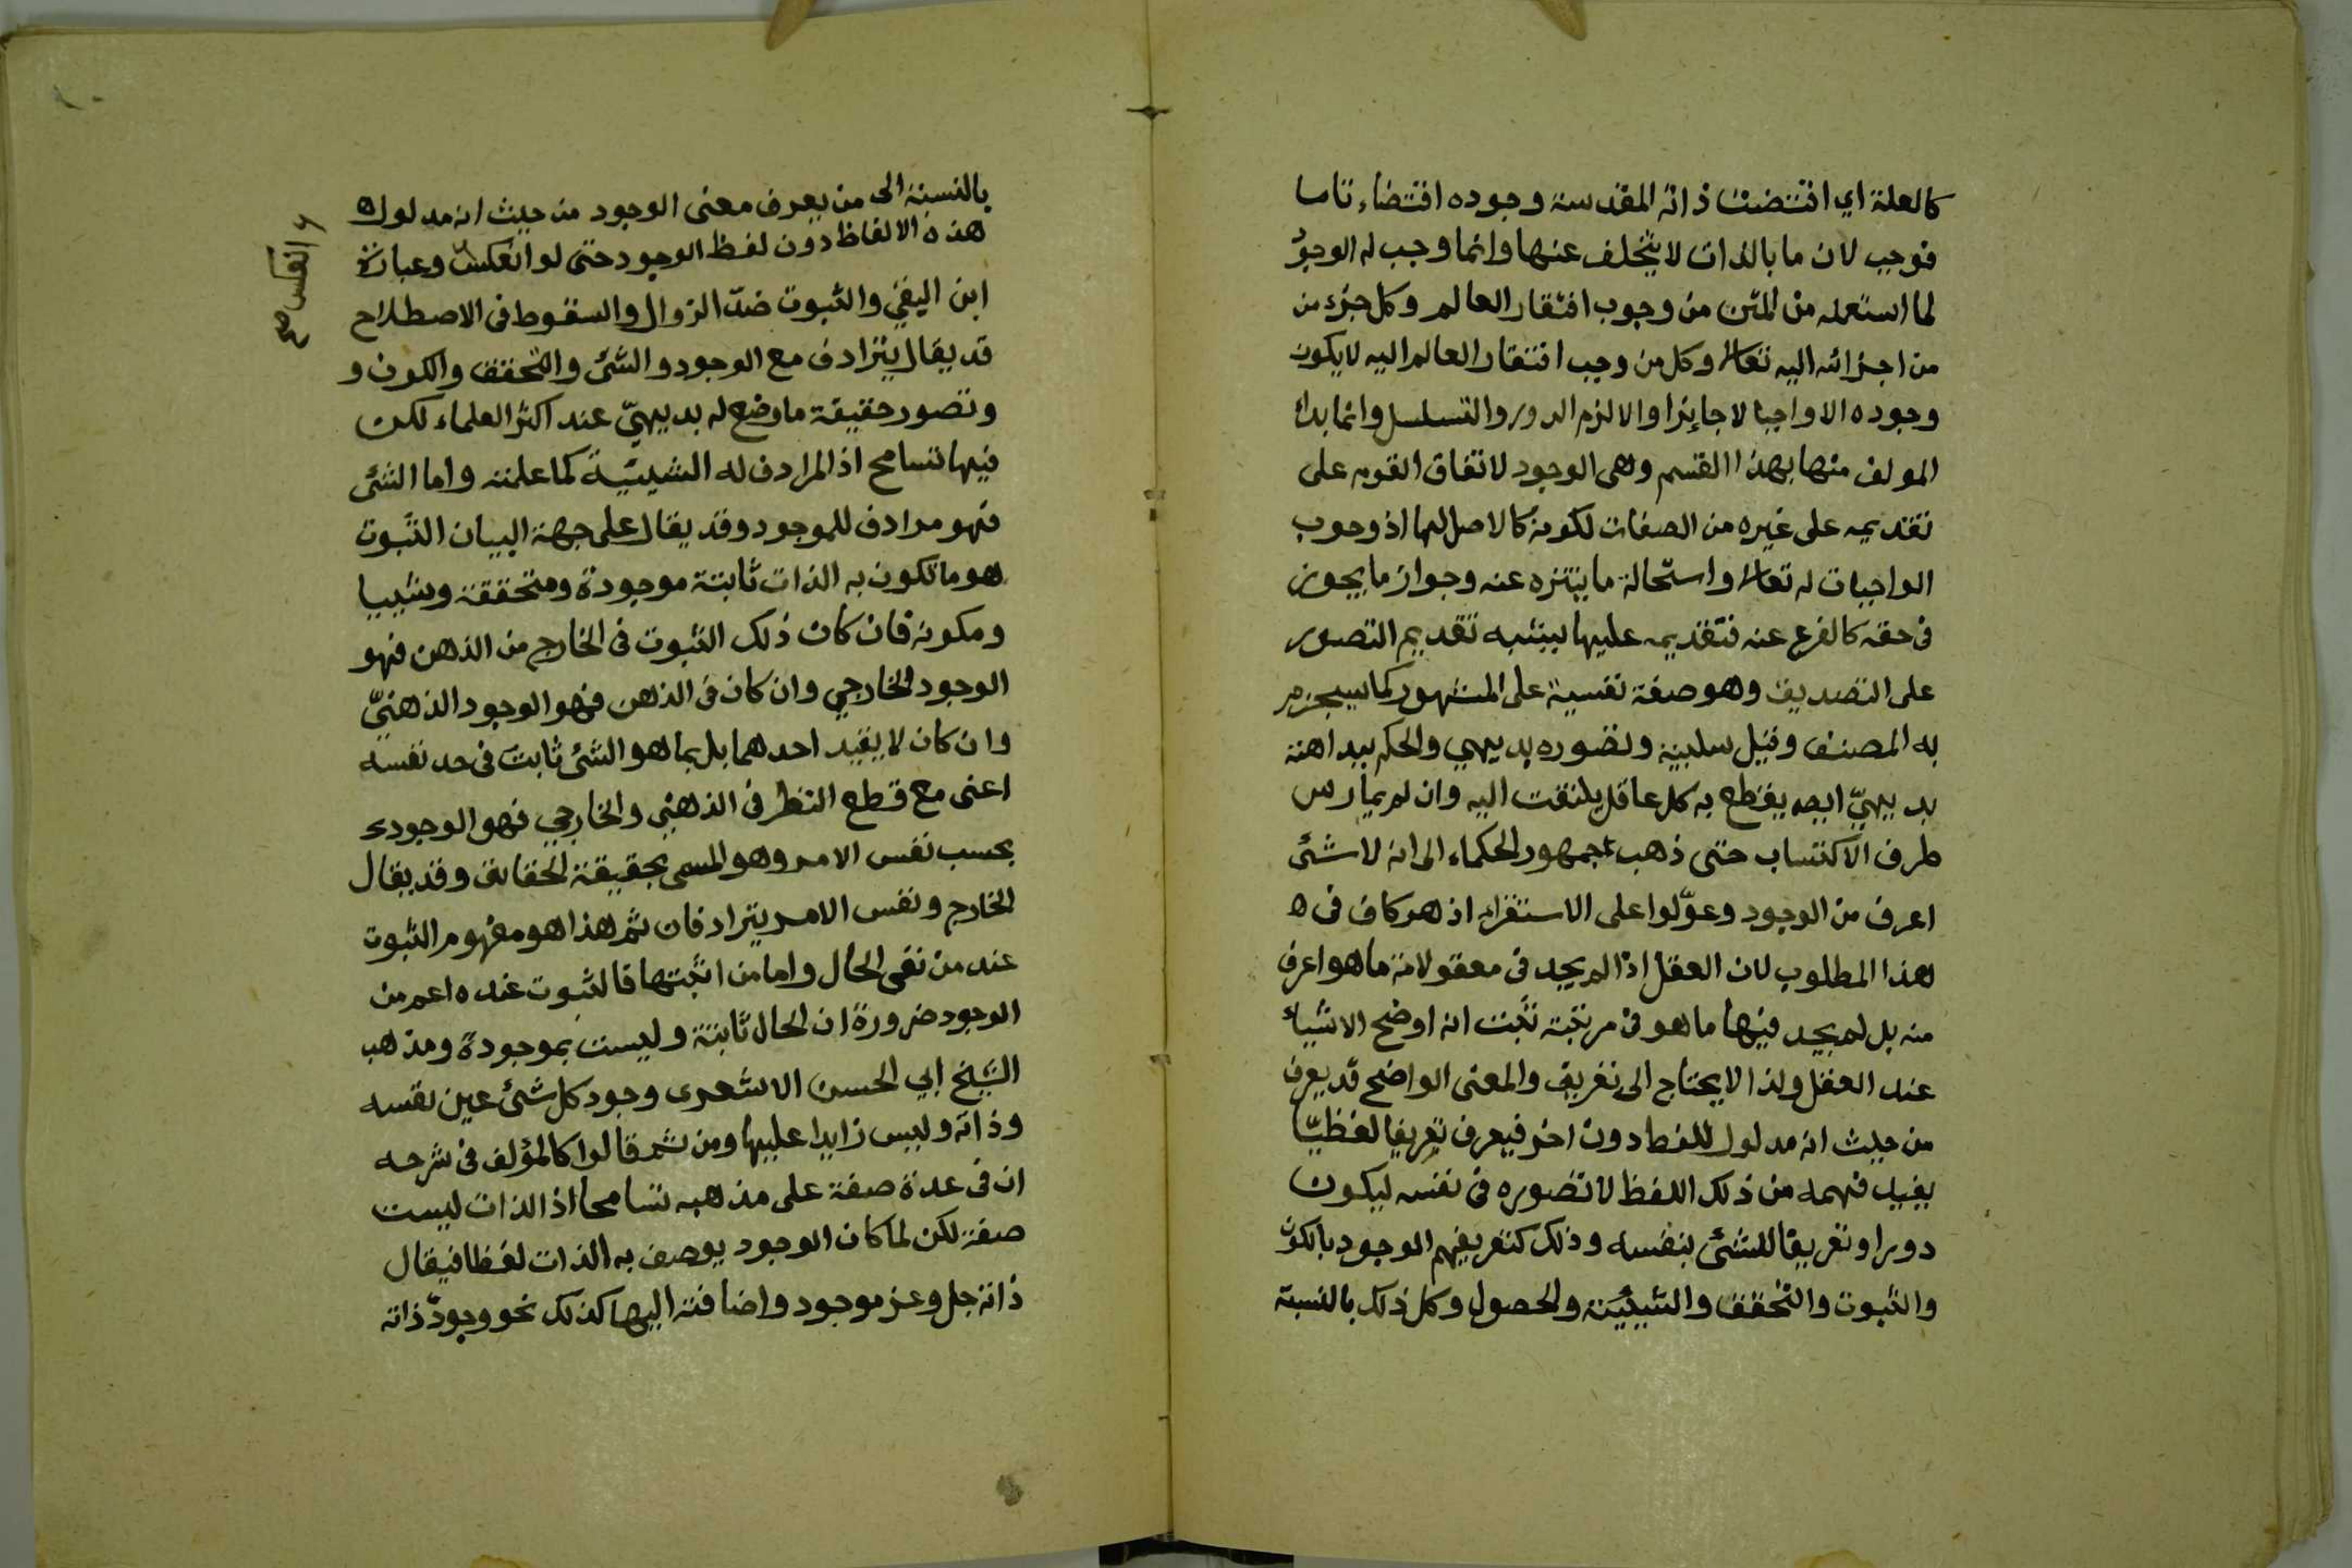 كالعلة اي اقتضت ذاته المقدسة وجوده اقتضاء تاما
فوجب لان ما بالذات لا يتخلف عنها وانما وجب له الوجود
لما استعمله من المتن من وجوب افتقار العالم وكل جزء من
من اجزائه اليه تعالى وكل من وجب افتقار العالم اليه لا يكون
وجوده الا واجبا لا جايزا والا لزم الدور والتسلسل وانما بدا
المولف منها بهذا القسم وهى الوجود لاتفاق القوم على
تقديمه على غيره من الصفات لكونه كالاصل لها اذ وجوب
الواجبات له تعالى واستحالة ما يتنزه عنه وجواز ما يجوز
فى حقه كالفرع عنه فتقديمه عليها يشبه تقديم التصور
على التصديق وهو صفة نفسية على المشهور كما سيجزم
به المصنف وقيل سلبية وتصوره بديهي والحكم ببداهته
بديهيّ ايضا يقطع به كل عاقل يلتفت اليه وان لم يمارس
طرف الاكتساب حتى ذهب جمهور الحكماء الى انه لا شئ
اعرف من الوجود وعوّلوا على الاستقراء اذ هو كاف فى ه
هذا المطلوب لان العقل اذا لم يجد فى معقولاته ما هو اعرف
منه بل لم يجد فيها ما هو فى مرتبته ثبت انه اوضح الاشياء
عند العقل ولذا لا يحتاج الى تعريف والمعنى الواضح قد يعرف
من حيث انه مدلول للفظ دون اخر فيعرف تعريفا لفظيّا
يفيد فهمه من ذلك اللفظ لا تصوره فى نفسه ليكون
دورا وتعريفا للشئ بنفسه وذلك كتعريفهم الوجود بالكون
والثبوت والتحقق والشيئية والحصول وكل ذلك بالنسبة
بالنسبة الى من يعرف معنى الوجود من حيث انه مدلول ه
هذه الالفاظ دون لفظ الوجود حتى لو انعكس وعبارة
انعكس صح
ابن اليفي والثبوت ضدّ الزوال والسقوط فى الاصطلاح
قد يقال يترادف مع الوجود والشئ والتحقق والكون و
وتصور حقيقة ما وضع له بديهيّ عند اكثر العلماء لكن
فيها تسامح اذ المرادف له الشيئية كما علمته واما الشئ
فهو مرادف للموجود وقد يقال على جهة البيان الثبوت
هو ما تكون به الذات ثابتة موجودة ومتحققة وشييا
ومكونة فان كان ذلك الثبوت فى الخارج من الذهن فهو
الوجود الخارجي وان كان فى الذهن فهو الوجود الذهنيّ
وان كان لا بقيد احدهما بل بما هو الشئ ثابت فى حد نفسه
اعنى مع قطع النظر فى الذهني والخارجي فهو الوجودى
بحسب نفس الامر وهو المسمى بحقيقة الحقائق وقد يقال
الخارج ونفس الامر يترادفان ثم هذا هو مفهوم الثبوت
عند من نفى الحال واما من اثبتها فالثبوت عنده اعم من
الوجود ضرورة ان الحال ثابتة وليست بموجودة ومذهب
الشيخ ابي الحسن الاشعرى وجود كل شئ عين نفسه
وذاته وليس زايدا عليها ومن ثم قالوا كالمؤلف فى شرحه
ان فى عدة صفة على مذهبه تسامحا اذ الذات ليست
صفة لكن لما كان الوجود يوصف به الذات لفظا فيقال
ذاته جل وعز موجود واضافته اليها كذلك نحو وجود ذاته